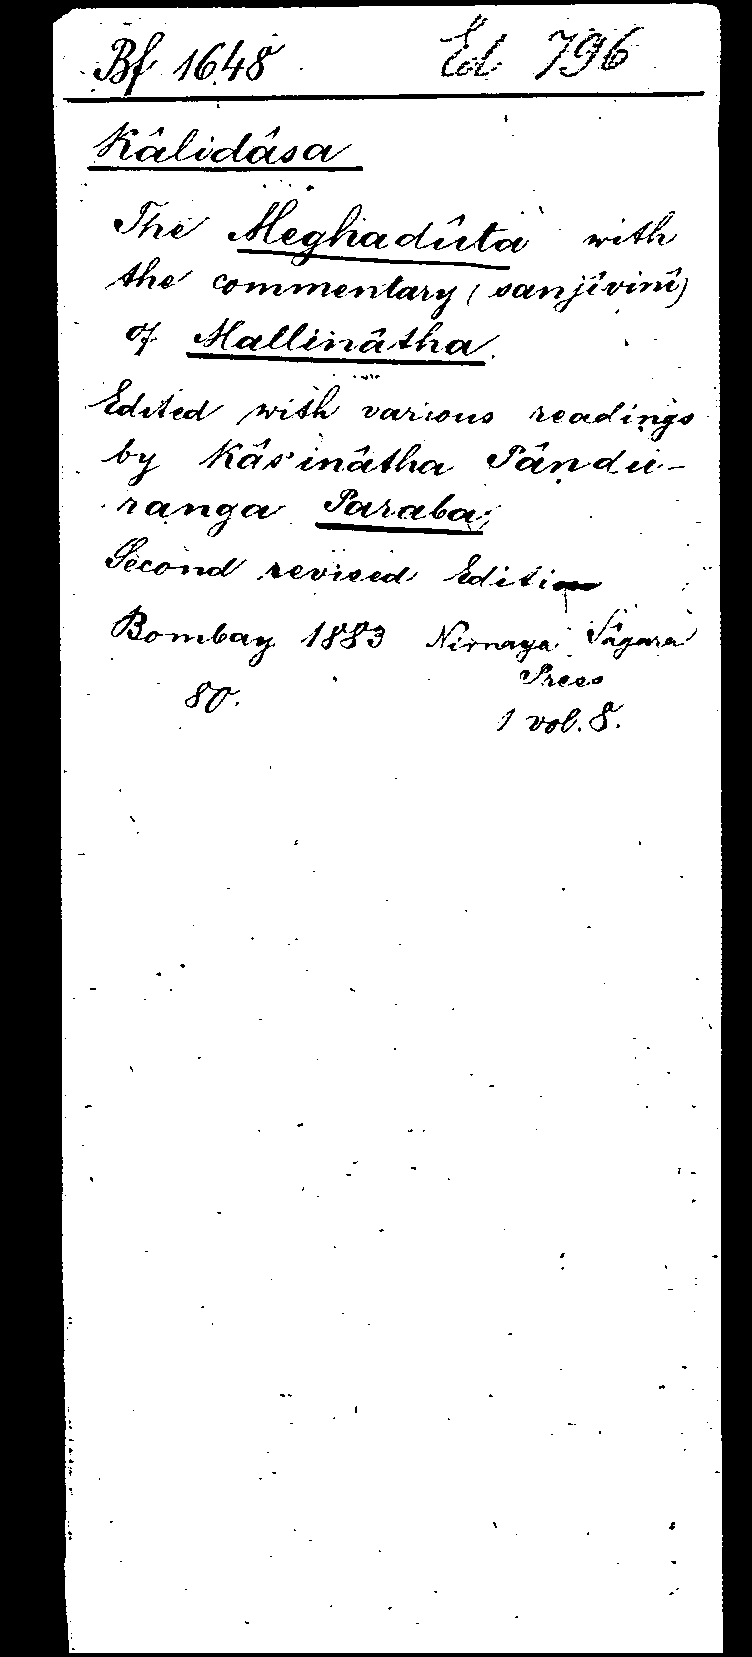 Bf 1648 Ed 796
Kâlidâsa
The Meghadûta with
the commentary (sanjîvinî)
of Mallinâtha.
Edited with various readings
by Kâs'inâtha Pâṇḍu-
ranga Paraba,
Second revised Edition
Bombay 1883 Nirṇaya Sâgara
Press
80. 1 vol. 8.